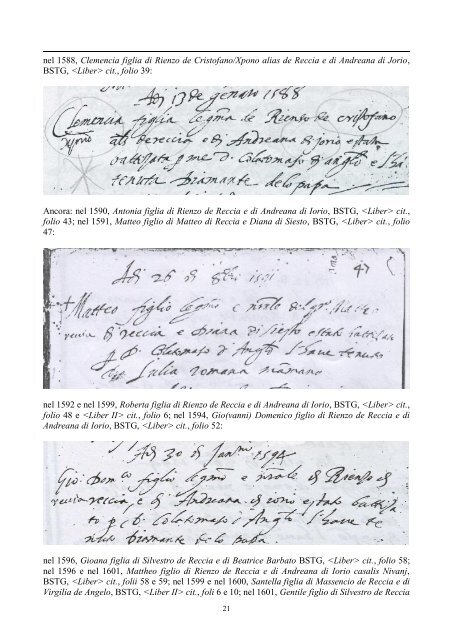 nel 1588, Clemencia figlia di Rienzo de Cristofano/Xpono alias de Reccia e di Andreana di Jorio,
BSTG, <Liber> cit., folio 39:
Adi 13 de gennaro 1588
Clemencia figlia legma de Rienzo de cristofano
als de reccia e di Andreana di jorio e stata
battizata p me d. Colatomaso d anglo e l ha
tenuta bramante delo papa
Ancora: nel 1590, Antonia figlia di Rienzo de Reccia e di Andreana di Iorio, BSTG, <Liber> cit.,
folio 43; nel 1591, Matteo figlio di Matteo di Reccia e Diana di Siesto, BSTG, <Liber> cit., folio
47:
47
Adi 26 di 1591
Matteo figlio e
reccia di reccia e Diana di siesto e stato battizato
p D. Colatomaso d Anglo l have tenuto
Julia romana
nel 1592 e nel 1599, Roberta figlia di Rienzo de Reccia e di Andreana di Iorio, BSTG, <Liber> cit.,
folio 48 e <Liber II> cit., folio 6; nel 1594, Gio(vanni) Domenico figlio di Rienzo de Reccia e di
Andreana di Iorio, BSTG, <Liber> cit., folio 52:
Adi 30 di 1594
Gio: Domco figlio e di Rienzo di
reccia reccia, e di Andreana di iorio e stato battiza
to p Colatomaso d Anglo l have te
nuto bramante de lo papa.
nel 1596, Gioana figlia di Silvestro de Reccia e di Beatrice Barbato BSTG, <Liber> cit., folio 58;
nel 1596 e nel 1601, Mattheo figlio di Rienzo de Reccia e di Andreana di Iorio casalis Nivanj,
BSTG, <Liber> cit., folii 58 e 59; nel 1599 e nel 1600, Santella figlia di Massencio de Reccia e di
Virgilia de Angelo, BSTG, <Liber II> cit., foli 6 e 10; nel 1601, Gentile figlio di Silvestro de Reccia
21